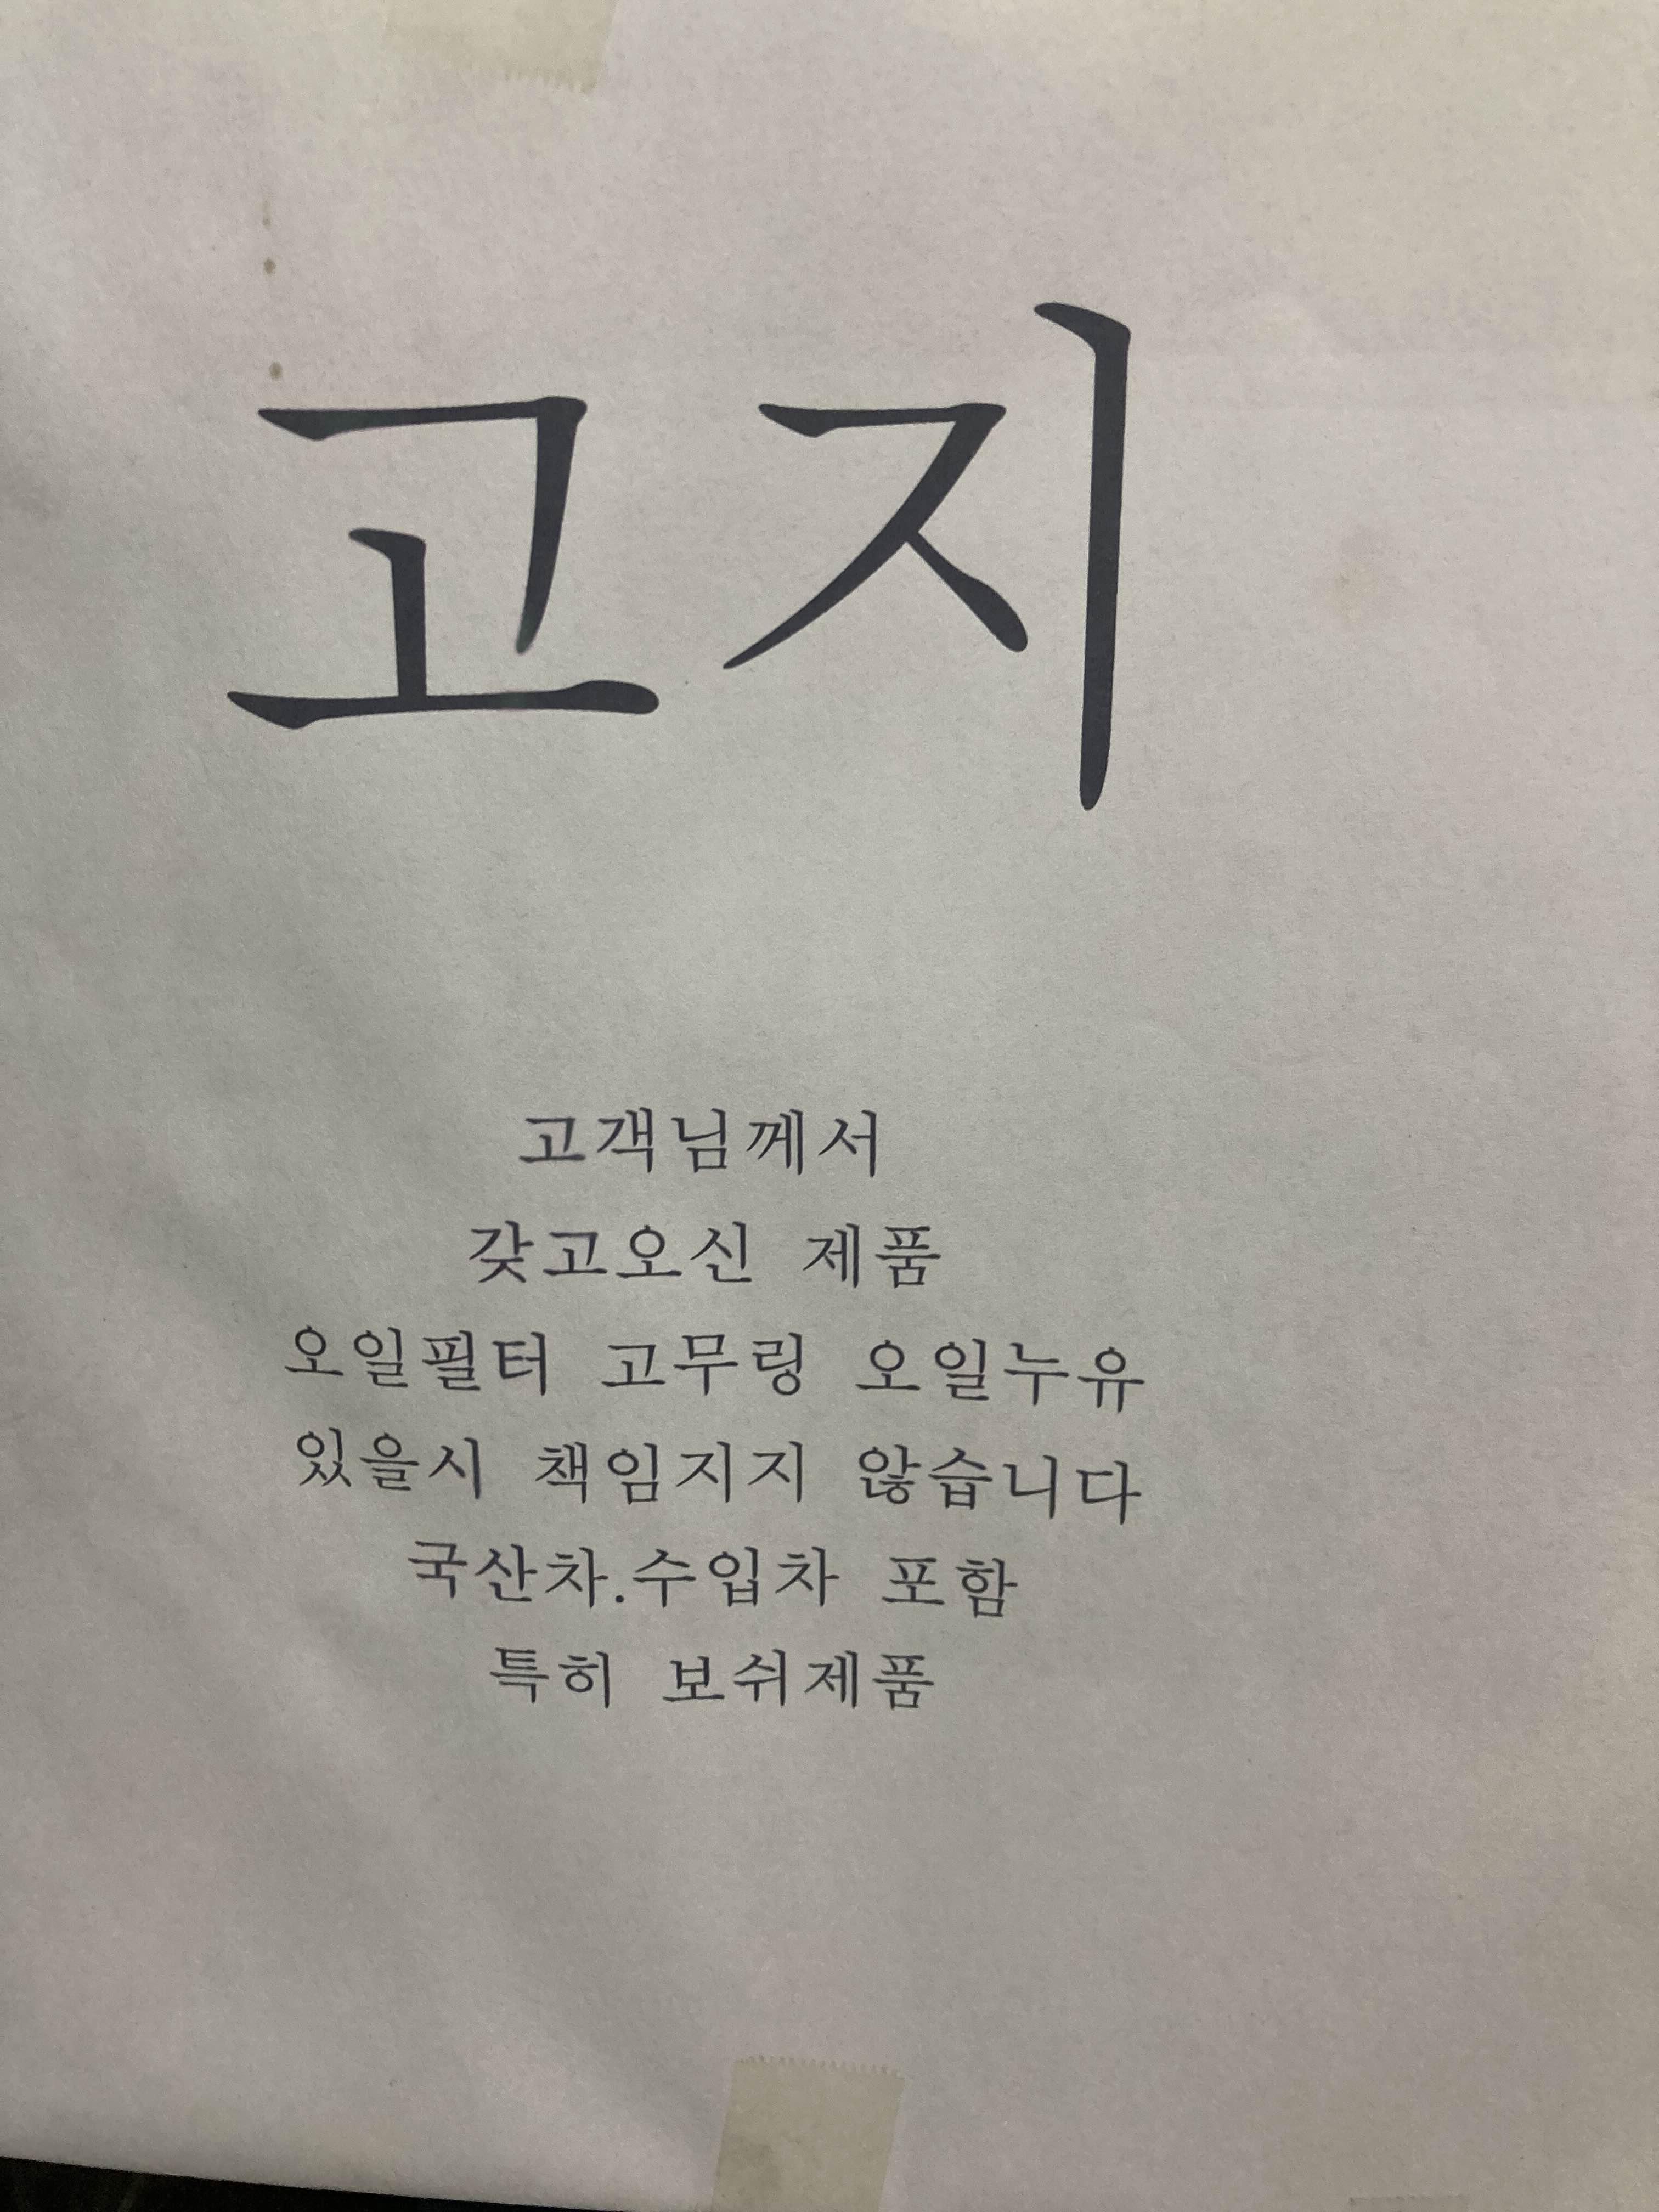 고지
고객님께서
갖고오신 제품
오일필터 고무링 오일누유
있을시 책임지지 않습니다
국산차.수입차 포함
특히 보쉬제품